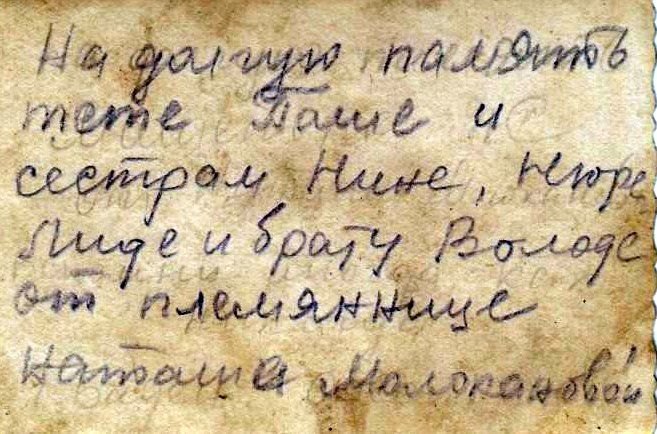 На долгую память
тете Поле и
сестрам Нине, Нюре
Лиде и брату Володе
от племяннице
Наташа Молокановой